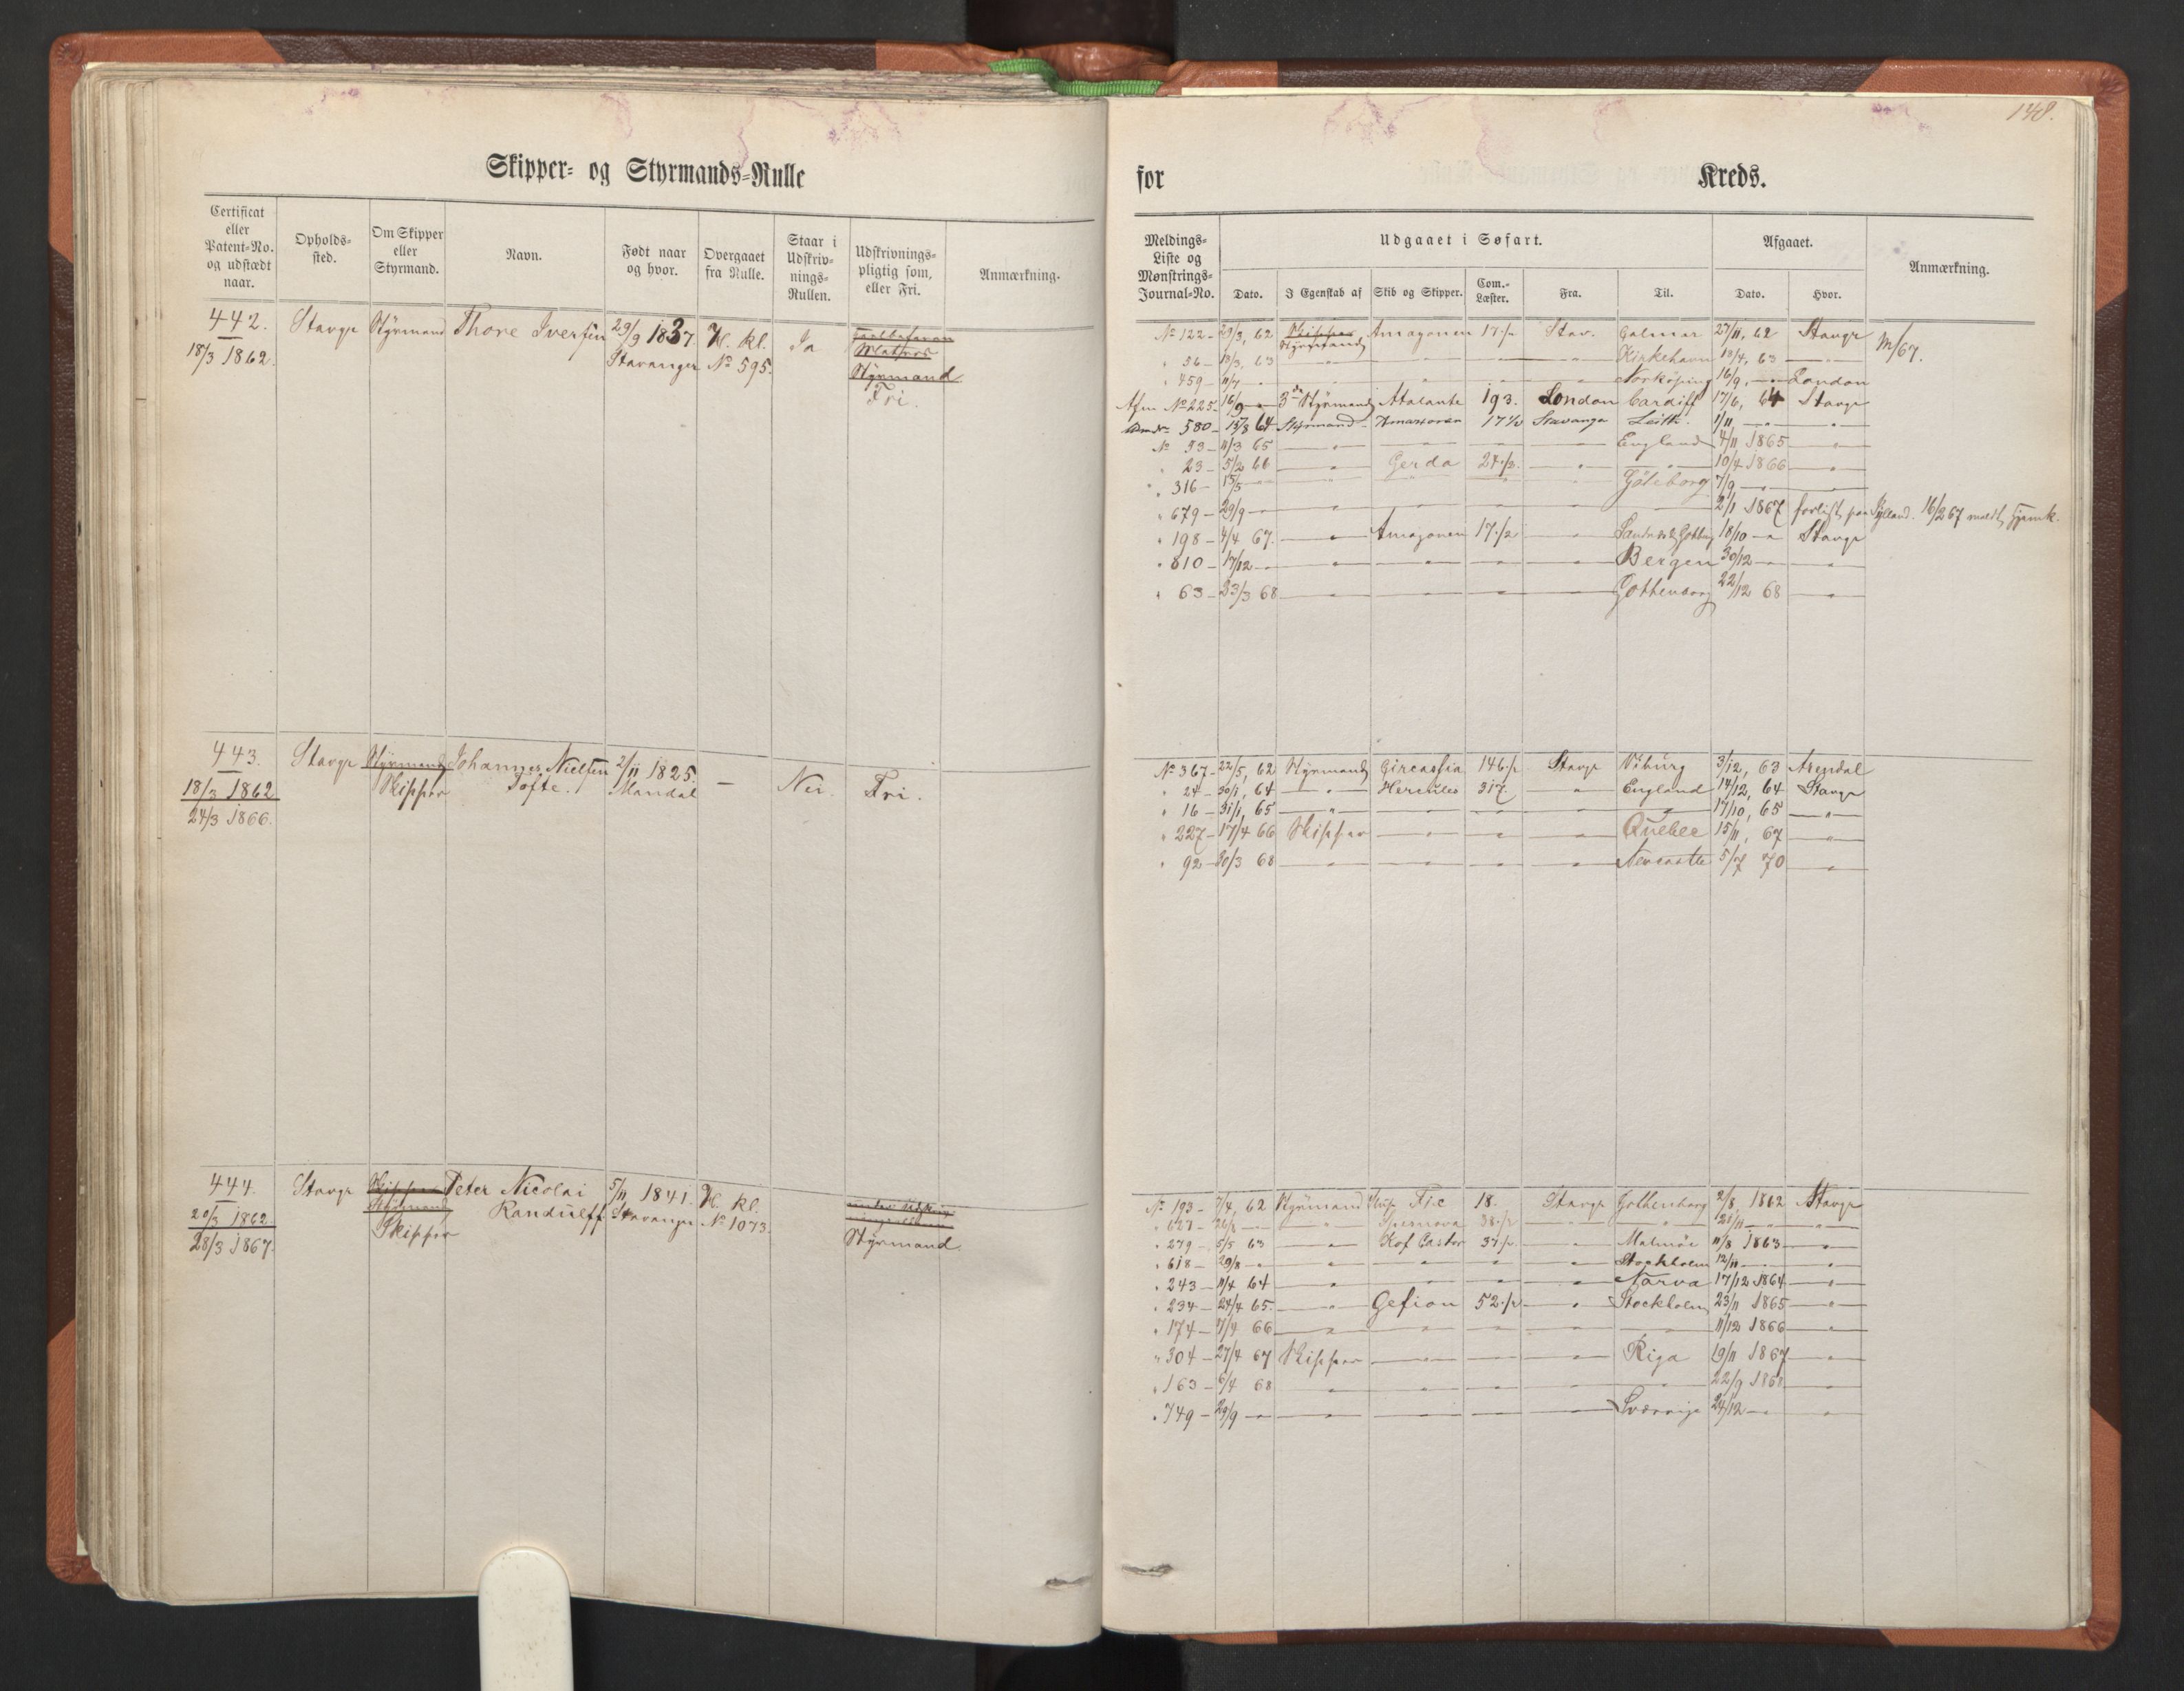 148.
Skipper- og Styrmands-Rulle
for Kreds.
Certificat eller Patent-No. og udstædt naar.
Opholds-sted.
Om Skipper eller Styrmand.
Navn.
Født naar og hvor.
Overgaaet fra Rulle.
Staar i Udskriv-nings-Rullen.
Udskrivnings-pligtig som, eller Fri.
Anmærkning.
Meldings-Liste og Mønstrings-Journal-No.
Udgaaet i Søfart.
Dato.
I Egenskab af
Skib og Skipper.
Com.-Læster.
Fra.
Til.
Afgaaet.
Dato.
Hvor.
Anmærkning.
442. Stavgr Styrmand Thore Iversen 29/9 1837 Kl. Ja
18/3 1862. Stavanger No 595. Matros
Styrmand
Fri.
No 122 - 29/3, 62 Skipper Styrmand Amazonen 17 1/2 Stav. Calmar 27/11, 62 Stavgr M/67.
" 56 - 18/3, 63 — — — — Kirkehavn 18/4, 63 —
" 459 - 11/7 — — — — — Norköping 16/9, — London
No 225 - 16/9 — 3die Styrmand Atalante 193. London Cardiff 17/6, 64 Stavgr
580 - 15/8 64 Styrmand Amazonen 17 1/2 Stavanger Leith. 1/11, — "
No 53 - 11/3 65 — — — — England 4/11 1865 — "
" 23 - 5/2 66 — Gerda 24 1/2. — — 10/4 1866 — "
" 316 - 15/5 — — — — — Göteborg 7/9 — "
" 679 - 29/9 — — — — — — 2/1 1867 forlist paa Jylland. 16/2 67 meldt hjemk.
" 198 - 4/4 67. — Amazonen 17 1/2 — 18/10 — Stavgr
" 810 - 17/12 — — — — — Bergen 30/12 — "
" 63 - 23/3 68 — — — — Gottenborg 22/12 68 — "
443. Stavgr Styrmand Johannes Nielsen 2/11 1825. — Nei Fri.
18/3 1862 Skipper Tofte. Mandal
24/3 1866.
No 367 - 22/5, 62 Styrmand Circassia 146 1/2 Stavgr Viburg 3/12, 63 Arendal
" 24 - 30/1, 64 — Hercules 317. " England 14/12, 64 Stavgr
" 16 - 31/1, 65 — — — — — 17/10, 65 — "
" 227 - 17/4 66 Skipper — — — Quebec 15/11, 67 — "
" 92 - 30/3 68 — — — — Newcastle 5/7 70 — "
444. Stavgr Skipper Peter Nicolai 5/11 1841. Kl.
20/3 1862 Styrmand Randulff Stavanger. No 1073.
28/3 1867. Skipper Styrmand.
No 193 - 7/4, 62 Styrmand 18. Stavgr Gothenborg 2/8, 1862 Stavgr
" 627 - — — 38 1/2 — — 21/11 — "
" 279 - 5/5 63 — Kof Castor 37 1/2. — Malmöe 11/8 1863 — "
" 618 - 29/8 — — — — — Stockholm 12/11 — "
" 243 - 11/4 64 — — — — Narva 17/12 1864 — "
" 234 - 24/4 65. — Gefion 52 1/2 — Stockholm 23/11 1865 — "
" 174 - 7/4 66 — — — — — 11/12 1866 — "
" 304 - 27/4 67 Skipper — — — Riga 19/11 1867 — "
" 163 - 6/4 68 — — — — — 22/9 1868 — "
" 749 - 29/9 — — — — — Sverrige 24/12 — "